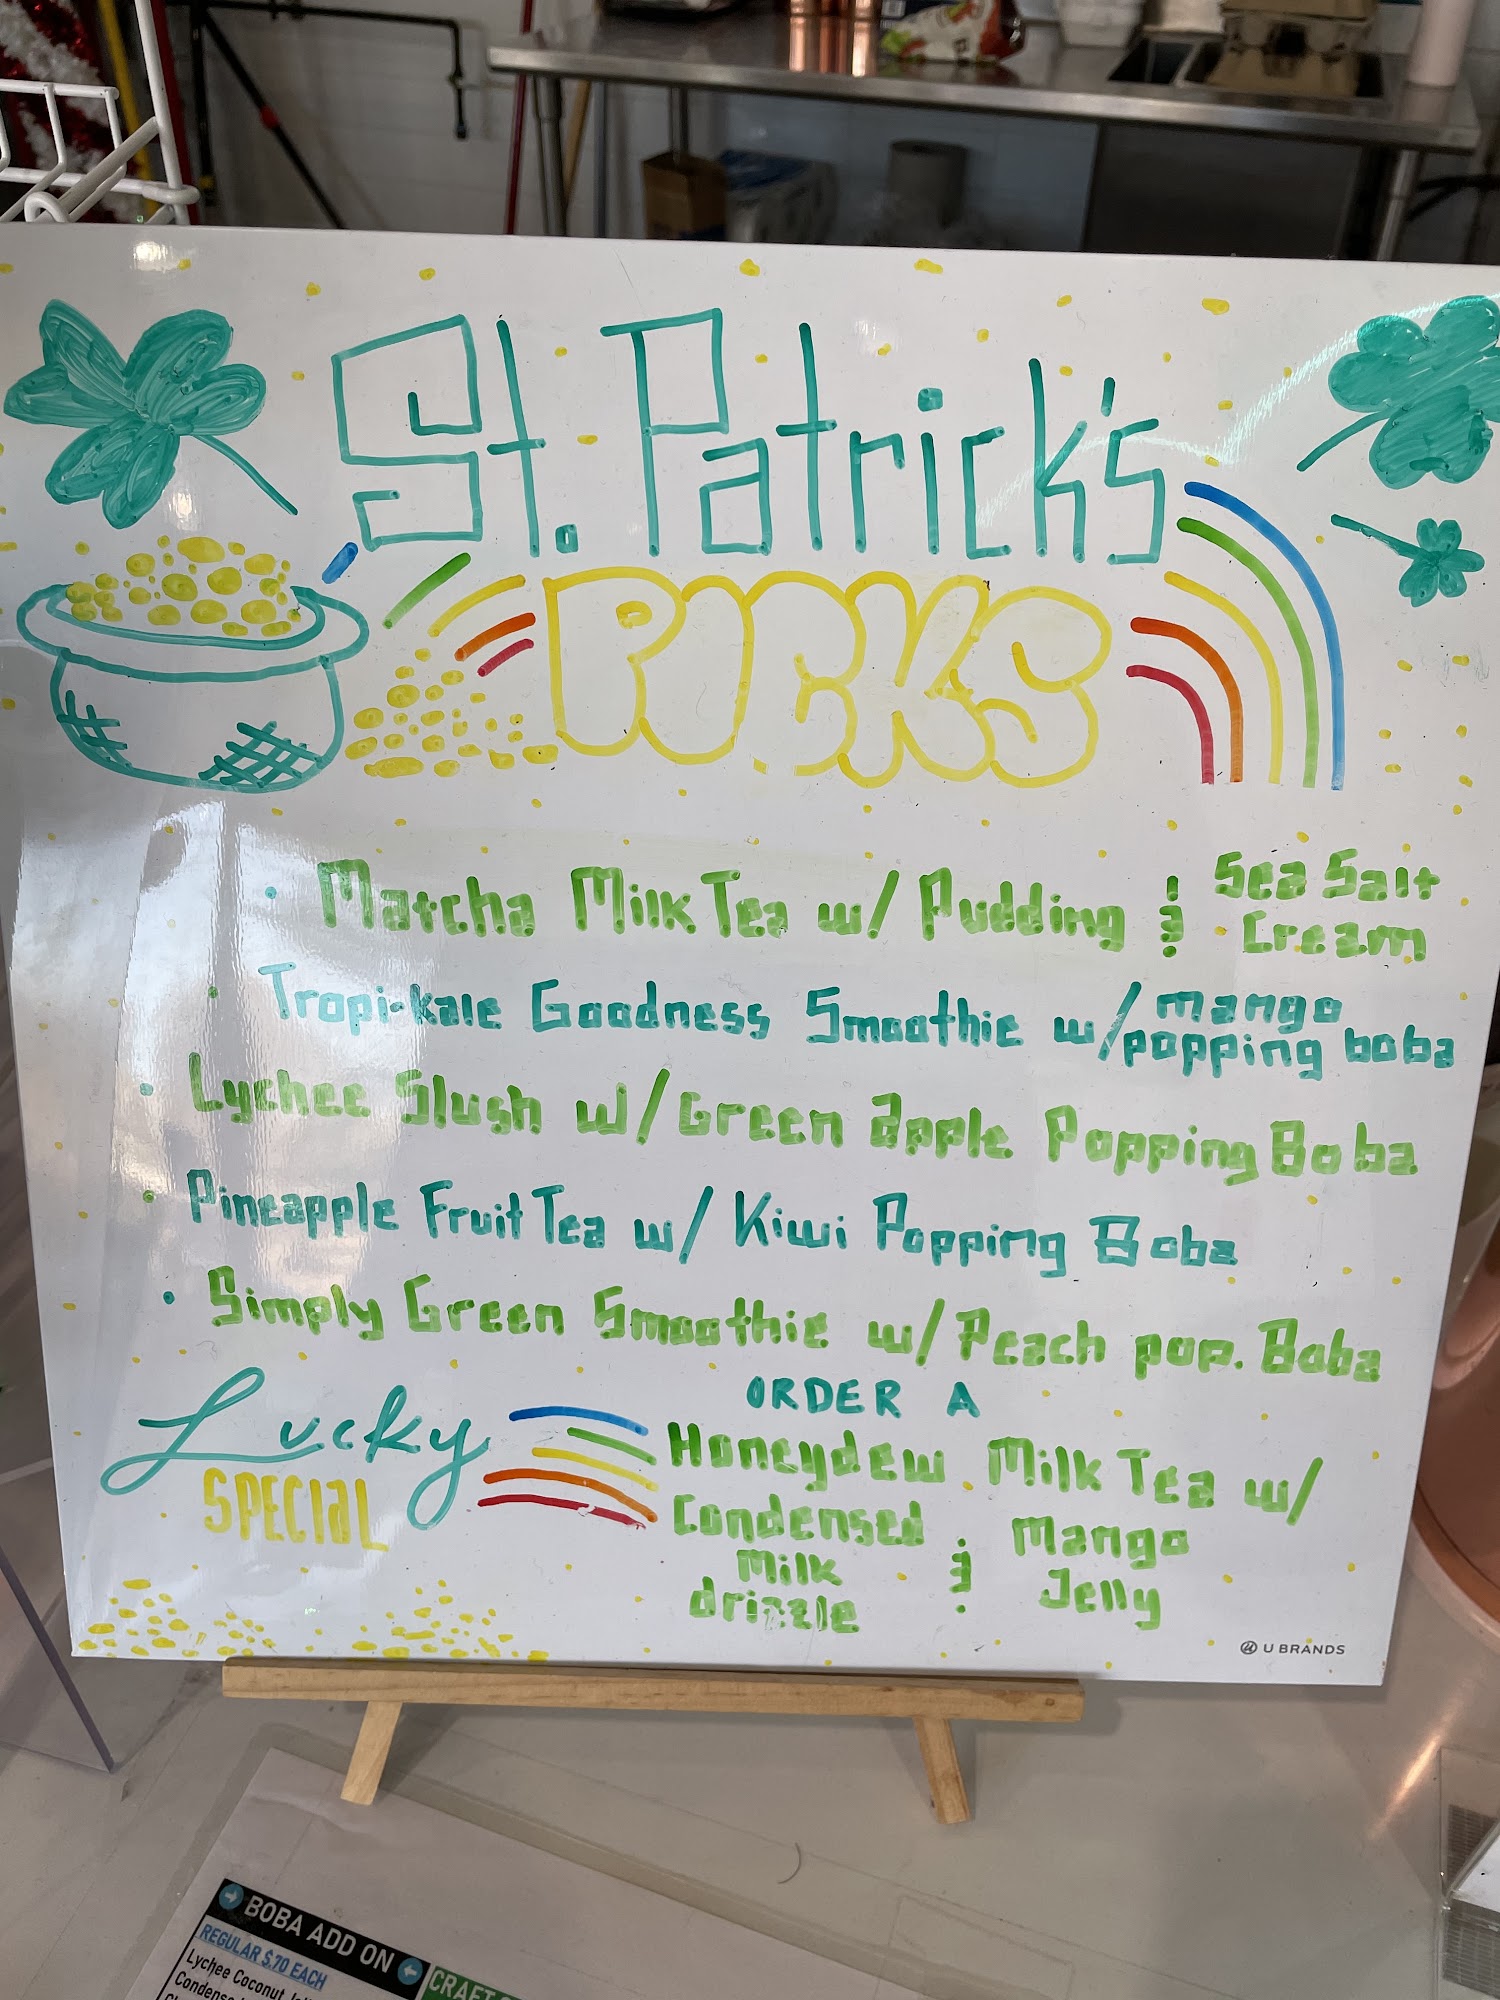 St. Patrick's
PICKS
• Matcha Milk Tea w/ Pudding & Sea Salt Cream
• Tropi-kale Goodness Smoothie w/ mango popping boba
• Lychee Slush w/ Green apple Popping Boba
• Pineapple Fruit Tea w/ Kiwi Popping Boba
• Simply Green Smoothie w/ Peach pop. Boba
Lucky
SPECIAL
ORDER A
Honeydew Milk Tea w/
Condensed Milk drizzle & Mango Jelly
U BRANDS
BOBA ADD ON
REGULAR $.70 EACH
Lychee Coconut